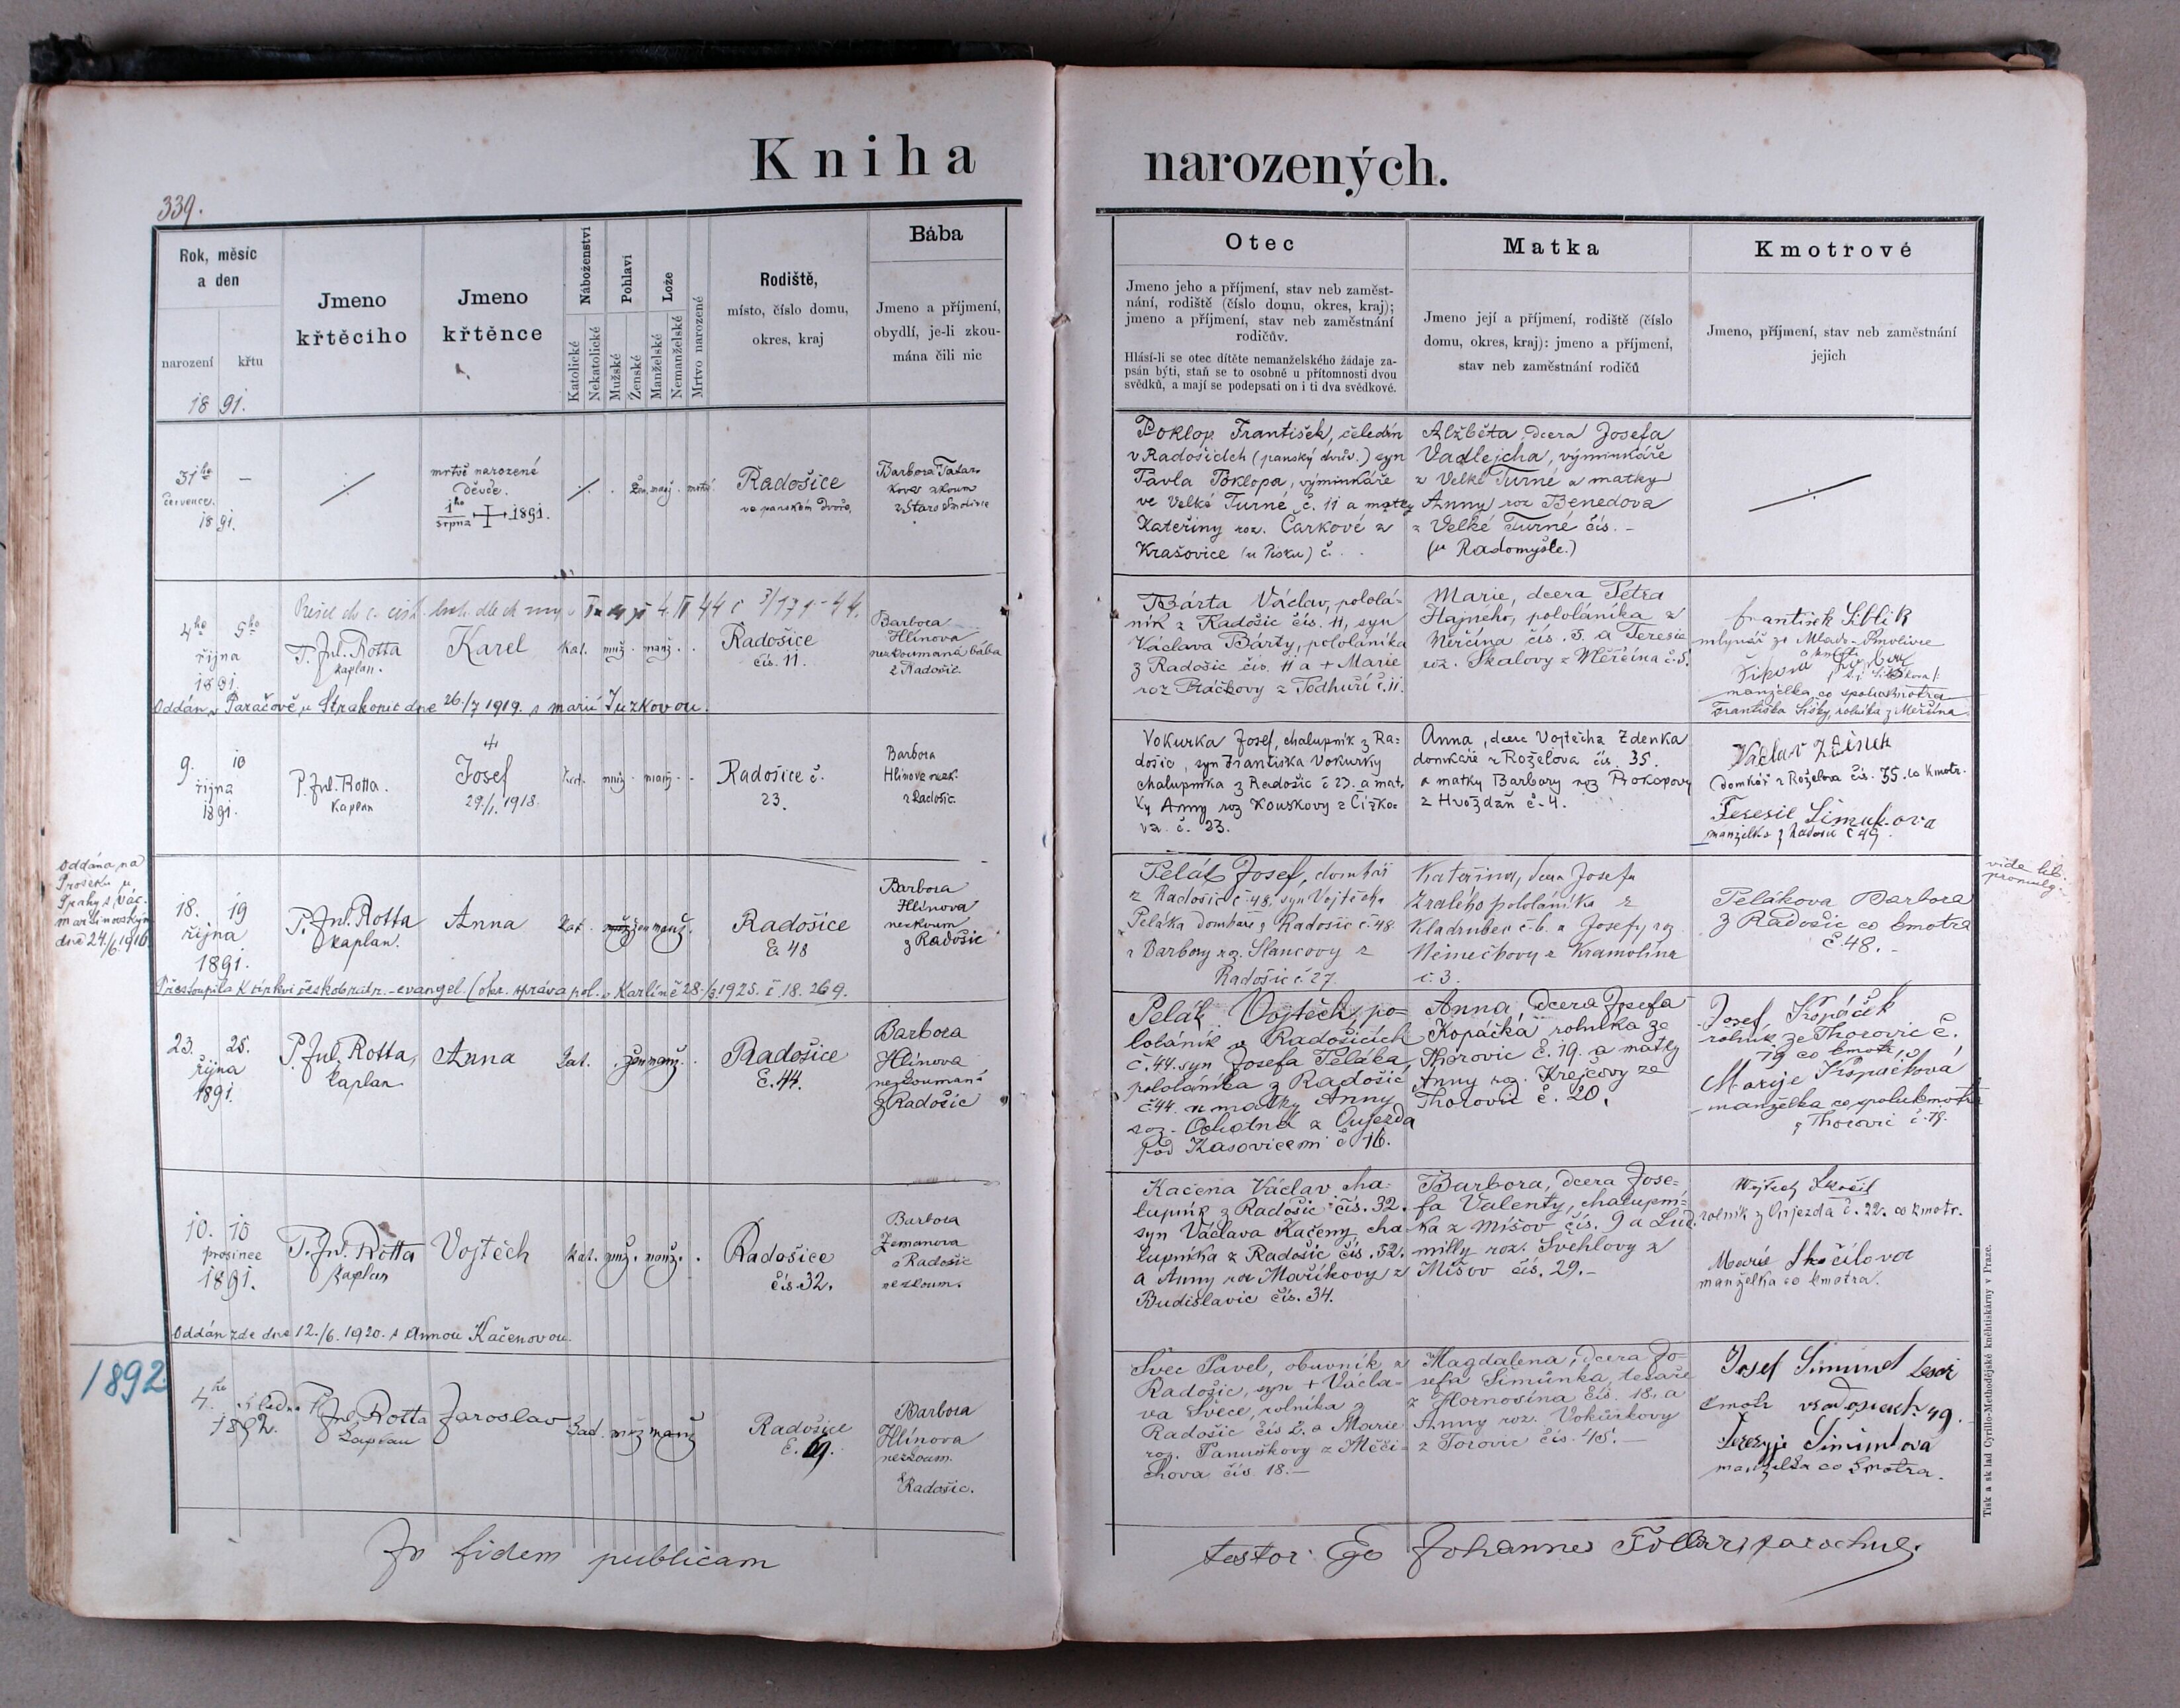 Kniha narozených.
339.
Rok, měsíc
a den
narození
křtu
18 91.
Jmeno
křtěcího
Jmeno
křtěnce
Náboženství
Katolické
Nekatolické
Pohlaví
Mužské
Ženské
Lože
Manželské
Nemanželské
Mrtvo narozené
Rodiště,
místo, číslo domu,
okres, kraj
Bába
Jmeno a příjmení,
obydlí, je-li zkou-
mána čili nic
Otec
Jmeno jeho a příjmení, stav neb zaměst-
nání, rodiště (číslo domu, okres, kraj);
jmeno a příjmení, stav neb zaměstnání
rodičův.
Hlásí-li se otec dítěte nemanželského žádaje za-
psán býti, staň se to osobně u přítomnosti dvou
svědků, a mají se podepsati on i ti dva svědkové.
Matka
Jmeno její a příjmení, rodiště (číslo
domu, okres, kraj): jmeno a příjmení,
stav neb zaměstnání rodičů
Kmotrové
Jmeno, příjmení, stav neb zaměstnání
jejich
31ho
července.
1891.
mrtvě narozené
děvče.
1ho srpna 1891.
Radošice
ve panském dvoře,
Barbora
z Staré Smolivce
Poklop František, čeledín
v Radošicích (panský dvůr.) syn
Pavla Poklopa, výminkáře
ve Velké Turné č. 11 a matky
Kateřiny roz. Čarkové z
Krašovice (u Písku) č. . .
Alžběta dcera Josefa
Vadlejcha, výminkáře
z Velké Turné a matky
Anny roz Benedova
z Velké Turné čís. -
(u Radomyšle.)
4ho 5ho
října
1891.
P. Jul. Rotta
kaplan.
Karel
kat. muž. manž. .
Radošice
čís. 11.
Barbora
Hlínova
nezkoumaná bába
z Radošic.
Oddán v Paračově u Strakonic dne 26./7 1919. s Marií Juzkovou.
Bárta Václav, pololá-
ník z Radošic čís. 11, syn
Václava Bárty, pololáníka
z Radošic čís. 11 a + Marie
roz Ptáčkovy z Podhuří č. 11.
Marie, dcera Petra
Hajného, pololáníka z
Měřčína čís. 5. a Teresie
roz. Skalovy z Měřčína č. 5.
František Siblík
mlynář ze Mlado-Smolivce
manželka co spolukmotra
Františka Šišky, rolníka z Měřčína.
9. 10
října
1891.
P. Jul. Rotta.
Kaplan
Josef
29./1. 1918.
Kat. muž. manž. .
Radošice č.
23.
Barbora
Hlínova nezk.
z Radošic.
Vokurka Josef, chalupník z Ra-
došic, syn Františka Vokurky
chalupníka z Radošic č 23. a mat-
ky Anny roz Kouskovy z Čížko-
va. č. 23.
Anna, dcera Vojtěcha Zdenka
domkáře z Roželova čís. 35.
a matky Barbory roz Prokopovy
z Hvožďan č. 4.
Václav Zdeněk
Domkář z Roželova čís. 35. co kmotr.
Teresie Šimukova
manželka z Radošic č 49.
Oddána na
Proseku u
Prahy s Vác.
Martinovským
dne 24./6. 1916
18. 19
října
1891.
P. Jul. Rotta
kaplan.
Anna
kat. muž žen manž.
Radošice
č. 48
Barbora
Hlínova
nezkoum
z Radošic
Přestoupila k církvi českobratr.-evangel. (okr. správa pol. v Karlíně 28./3. 1925. č. 18. 269.
Pelák Josef, domkář
z Radošic č 48. syn Vojtěcha
Peláka domkáře z Radošic č. 48.
a Barbory roz. Slancovy z
Radošic č. 27.
Kateřina, dcera Josefa
Zralého pololáníka z
Kladrubec č. 6. a Josefy roz
Němečkovy z Kramolína
č. 3.
Pelákova Barbora
z Radošic co kmotra
č. 48. -
vide lib.
promulg.
23. 25.
října
1891.
P. Jul. Rotta,
kaplan.
Anna
kat. . žen manž. .
Radošice
č. 44.
Barbora
Hlínova
nezkouman
z Radošic
Pelák Vojtěch, po-
loláník z Radošicích
č. 44. syn Josefa Peláka,
pololáníka z Radošic
č 44. a matky Anny
roz. Ochotná z Oujezda
pod Kasovicemi č 16.
Anna, dcera Josefa
Kopáčka rolníka ze
Thorovic č. 19. a matky
Anny roz. Krejčovy ze
Thorovic č. 20.
Josef Kopáček
rolník ze Thorovic č.
19 co kmotr,
Marije Kopáčková
manželka co spolukmotra
z Thorovic č. 19.
10. 10
prosince
1891.
P. Jul. Rotta
kaplan
Vojtěch
kat. muž. manž. .
Radošice
čís. 32.
Barbora
Zemanova
z Radošic
nezkoum.
Oddán zde dne 12./6. 1920. s Annou Kačenovou.
Kačena Václav cha-
lupník z Radošic čís. 32.
syn Václava Kačeny, cha-
lupníka z Radošic čís. 32.
a Anny roz Maříkovy z
Budislavic čís. 34.
Barbora, dcera Jose-
fa Valenty, chalupní-
ka z Míšov čís. 9 a Lud-
milly roz. Švehlovy z
Míšov čís. 29. -
Vojtěch Skočil
rolník z Oujezda č. 22. co kmotr.
Marie Skočilova
manželka co kmotra.
1892
4. ledna
1892.
P. Jul. Rotta
kaplan
Jaroslav
kat. muž manž
Radošice
č. 49.
Barbora
Hlínova
nezkoum.
z Radošic.
Švec Pavel, obuvník z
Radošic, syn + Václa-
va Švece, rolníka z
Radošic čís 2. a Marie
roz. Panuškovy z Měči-
chova čís. 18. -
Magdalena, dcera Jo-
sefa Šimůnka, tesaře
z Hornosína čís. 18. a
Anny roz. Vokůrkovy
z Torovic čís. 45. -
Josef
kmotr 49.
manželka co kmotra.
In fidem publicam testor: Ego Johannes parochus.
Tisk a sklad Cyrillo-Methodějské knihtiskárny v Praze.